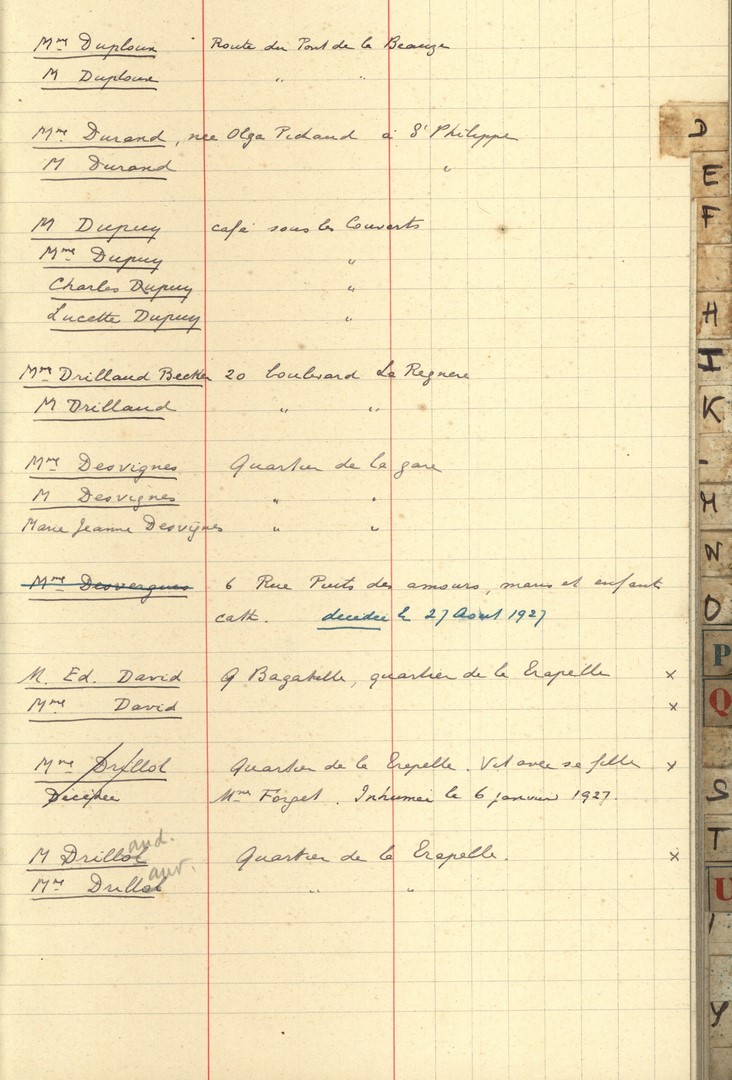 Mme Duploux Route du Pont de la Beauze
M Duploux " "
Mme Durand, née Olga Pichaud à St Philippe
M Durand "
M Dupuy café sous les Couverts
Mme Dupuy "
Charles Dupuy "
Lucette Dupuy "
Mme Drillaud Becker 20 boulevard La Regnere
M Drillaud " "
Mme Desvignes Quartier de la gare
M Desvignes " "
Marie Jeanne Desvignes " "
Mme Desvergnes 6 Rue Puits des amours, maris et enfant
cath. décédée le 27 Aout 1927
M. Ed. David Bagatelle, quartier de la Erapelle x
Mme David x
Mme Drillol Quartier de la Erepelle. Vit avec sa fille x
Décédée Mme Forget. Inhumée le 6 janvier 1927.
aud.
M Drillol Quartier de la Erapelle. x
Mme Drillol " "
D
E
F
H
I
K
M
N
O
P
Q
S
T
U
Y